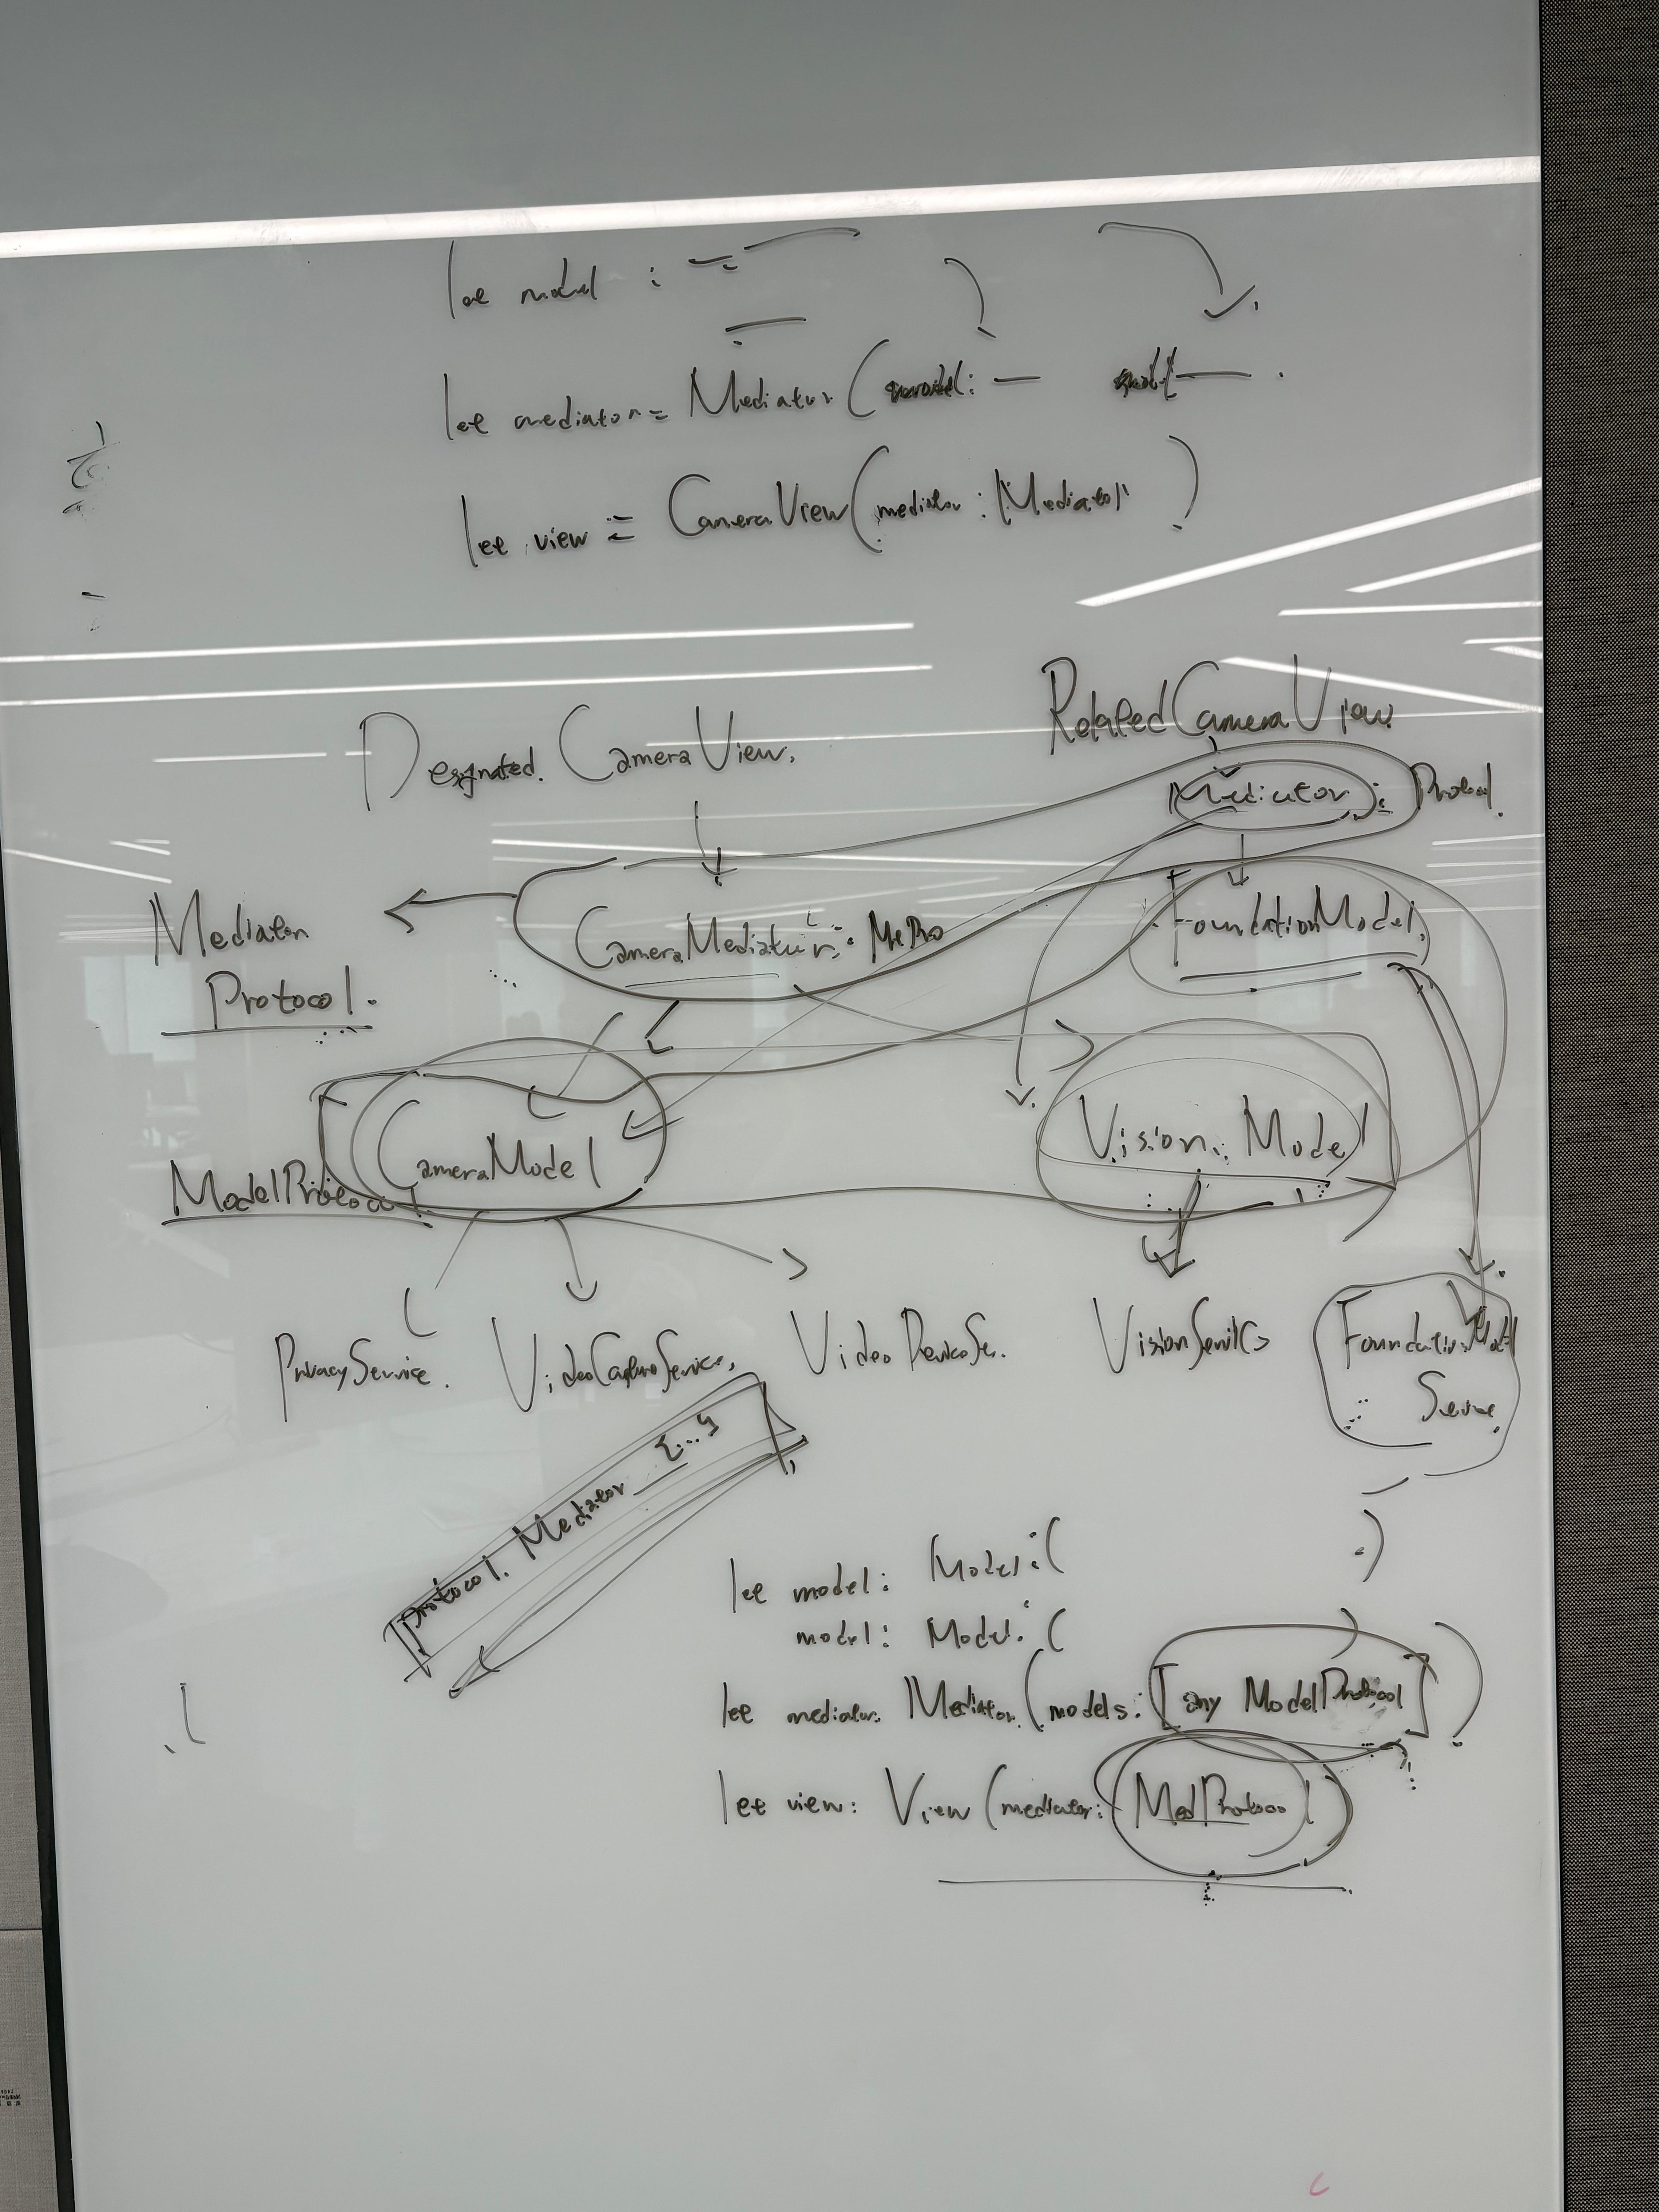 let model :
let mediator = Mediator ( model: — model — .
let view = CameraView (mediator : Mediator )
Designated. CameraView.
RelatedCameraView
Mediator : Protocol.
CameraMediator : MePro
FoundationModel.
Mediator
Protocol.
CameraModel
Vision Model
ModelProtocol
PrivacyService. VideoCaptureService. VideoDeviceSer. VisionServics
FoundationModel
Servie.
protocol. Mediator {...}
let model: Model:( )
model: Model: ( )
let mediator: Mediator (models: [any ModelProtocol] )
let view: View (mediator: MedProtoco )